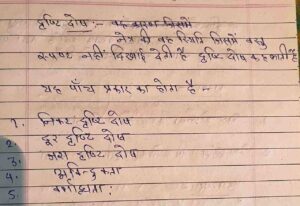 दृष्टि दोष :- वह कारण जिसमें
नेत्र की वह स्थिति जिसमें वस्तु
स्पष्ट नहीं दिखाई देती है दृष्टि दोष कहलाती है
यह पाँच प्रकार का होता है -
1. निकट दृष्टि दोष
2. दूर दृष्टि दोष
3. जरा दृष्टि दोष
4.
5. वर्णांधता